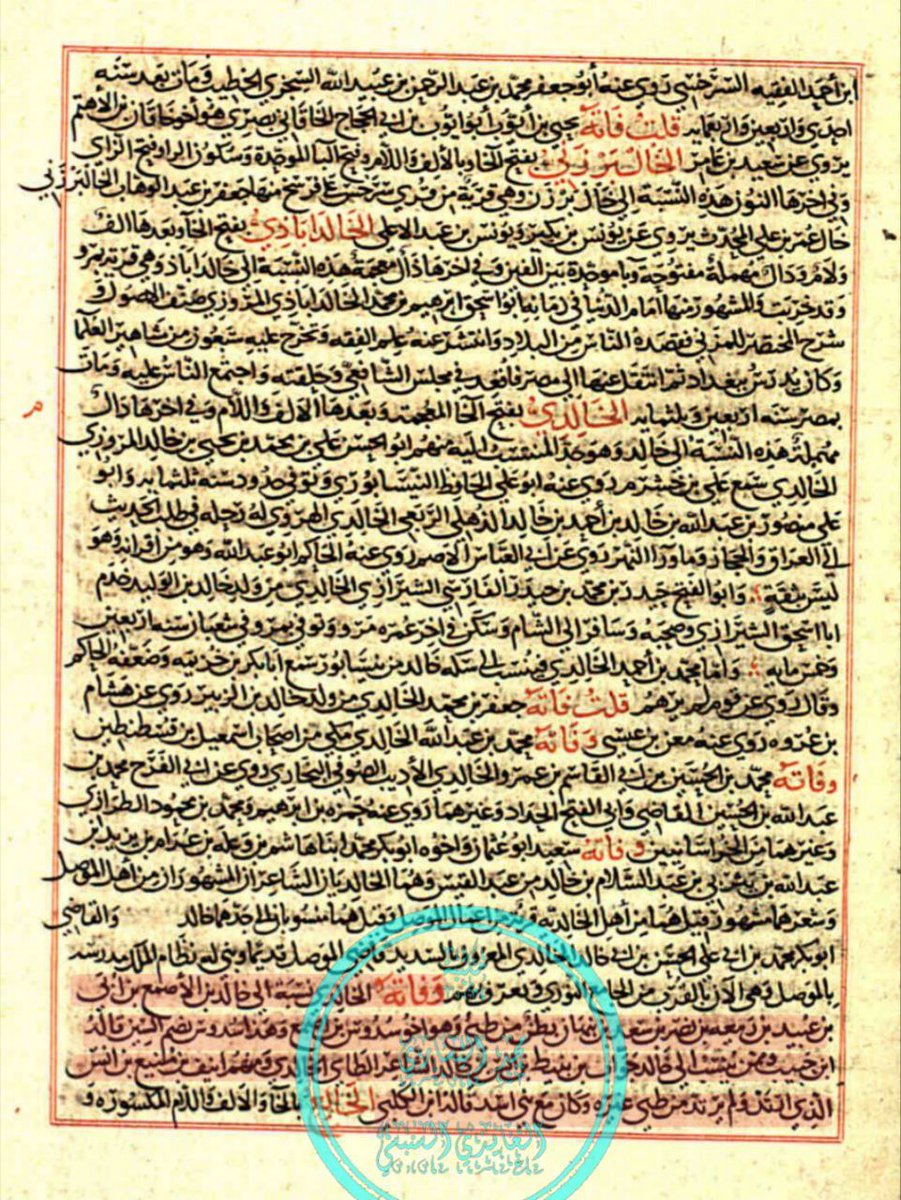 ابن أحمد الفقيه السرخسي روى عنه أبو جعفر محمد بن عبد الرحمن بن عبد الله السجزي الخطيب ومات بعد سنه
احدى واربعين واربعمايه قلت فاته يحيى بن أبو أيوب بن ابي الحجاج الخاقاني بصري هو أخو خاقان بن الأهتم
يروي عن سعيد بن عامر الخالبرزني بفتح الخا وبالألف واللام وفتح البا الموحدة وسكون الرا وفتح الزاى
وفي اخرها النون هذه النسبة إلى خال برزن وهي قرية من قرى سرخس على فرسخ منها جعفر بن عبد الوهاب الخالبرزني
خال عمر بن علي المحدث يروي عن يونس بن بكير ويونس بن عبد الاعلى الخالداباذي بفتح الخا وبعدها الف
ولام ودال مهملة مفتوحه وبا موحدة بين الفين وفي اخرها ذال معجمة هذه النسبة الى خالداباذ وهي قرية بمرو
وقد خربت والمشهور منها امام الدنيا في زمانه ابو اسحق ابرهيم بن محمد الخالداباذي المروزي صنف الاصول و
شرح المختصر للمزني فقصده الناس من البلاد وانتشر عنه علم الفقه وتخرج عليه سبعون من مشاهير العلما
وكان يدرس ببغداد ثم انتقل عنها الى مصر فاقعد في مجلس الشافعي وحلقته واجتمع الناس عليه ومات
بمصر سنه اربعين وثلثمايه الخالدي بفتح الخا المعجمة وبعدها الالف واللام وفي اخرها دال
مهملة هذه النسبة الى خالد وهو جد المنتسب اليه منهم ابو الحسن علي بن محمد بن يحيى بن خالد المروزي
الخالدي سمع علي بن خشرم روى عنه ابو علي الحافظ النيسابوري وتوفي حدود سنه ثلثمايه وابو
علي منصور بن عبد الله بن خالد بن أحمد بن خالد الذهلي الربعي الخالدي الهروي له رحله في طلب الحديث
الى العراق والحجاز وماورا النهر روى عن ابي العباس الاصم روى عنه الحاكم ابو عبد الله وهو من اقرانه وهو
ليس بثقة وابو الفتح حيدر بن محمد بن حيدر الفارسي الشيرازي الخالدي من ولد خالد بن الوليد خدم
ابا اسحق الشيرازي وصحبه وسافر الى الشام وسكن في اخر عمره مرو وتوفي بمرو في شعبان سنه اربعين
وخمس مايه واما محمد بن أحمد الخالدي فينسب الى سكة خالد من نيسابور سمع ابا بكر بن خزيمة وضعفه الحاكم
وقال روى عن قوم لم يرهم قلت فاته جعفر بن محمد الخالدي من ولد خالد بن الزبير روى عن هشام
بن عروه روى عنه معن بن عيسى وفاته محمد بن عبد الله الخالدي مكي من اصحاب اسمعيل بن قسطنطين
وفاته محمد بن الحسين بن ابي القاسم بن عمرو الخالدي الأديب الصوفي البخاري روى عن ابي الفرج محمد بن
عبد الله بن الحسين القاضي وابي الفتح الحداد وغيرهما روى عنه حمزه بن ابرهيم ومحمد بن محمود الطرازي
وغيرهما من الخراسانيين وفاته سعيد ابو عثمان واخوه ابو بكر محمد ابنا هاشم بن وعلة بن عرام بن يزيد بن
عبد الله بن يثربي بن عبد السلام بن خالد من عبد القيس وهما الخالديان الشاعران المشهوران من اهل الموصل
وشعرهما مشهور قيل هما من أهل الخالدية قرية من اعمال الموصل وقيل هما منسوبان الى احدهما خالد والقاضي
ابو بكر محمد بن ابي علي الحسن بن ابي خالد الخالدي المعروف بالسديد قاضي الموصل قديما وبنى له نظام الملك مدرسه
بالموصل وهي الان بالقرب من الجامع النوري وتعرف بهم وفاته الخالدي نسبة الى خالد بن الأصمع بن ابي
بن عبيد بن ربيعه بن نصر بن سعد بن نبهان بطن من طيئ وهو اخو سدوس بن اصمع وهذا سدوس بضم السين قاله
ابن حبيب وممن ينسب الى خالد جواب بن نبيط بن انس بن خالد الشاعر الطاى الخالدي ومنهم انيف بن منيع بن انس
الذي ارتد ولم يرتد من طيئ غيره وكان مع بني اسد قاله ابن الكلبي بالخا والالف واللام المكسوره و
م